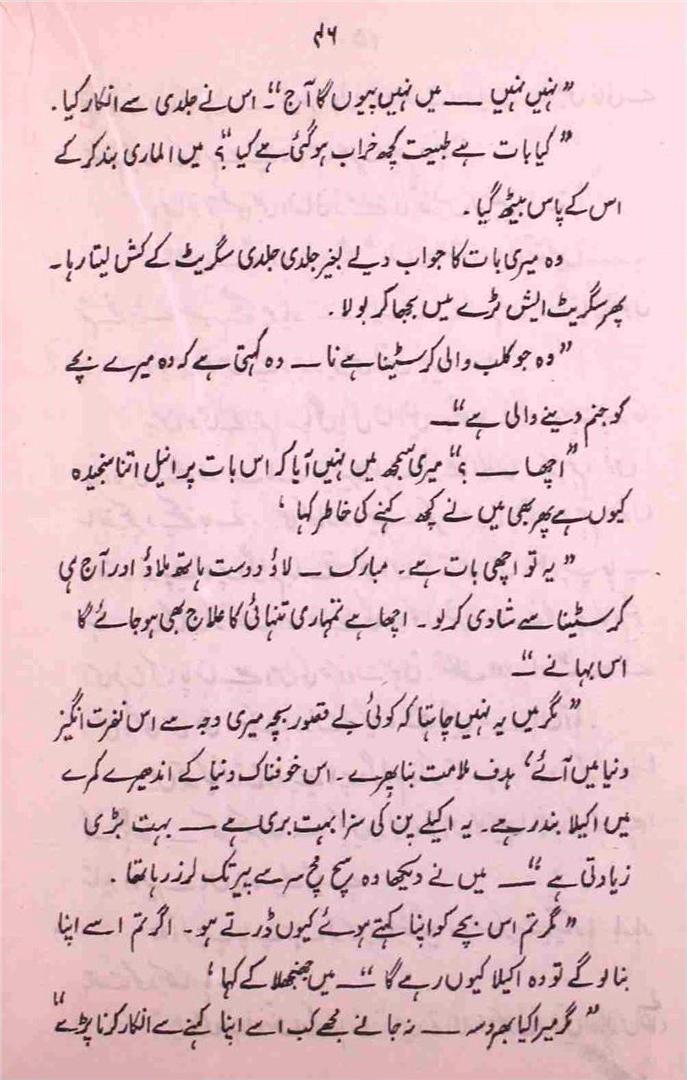 ۴۶
”نہیں نہیں ـــ میں نہیں پیوں گا آج“۔ اس نے جلدی سے انکار کیا۔
”کیا بات ہے طبیعت کچھ خراب ہو گئی ہے کیا“؟ میں الماری بند کر کے
اس کے پاس بیٹھ گیا۔
وہ میری بات کا جواب دیے بغیر جلدی جلدی سگریٹ کے کش لیتا رہا۔
پھر سگریٹ ایش ٹرے میں بجھا کر بولا۔
”وہ جو کلب والی کرسٹینا ہے نا ـــ وہ کہتی ہے کہ وہ میرے بچے
کو جنم دینے والی ہے“ـــ
”اچھا ـــ ؟“ میری سمجھ میں نہیں آیا کہ اس بات پر انیل اتنا سنجیدہ
کیوں ہے پھر بھی میں نے کچھ کہنے کی خاطر کہا ‘
”یہ تو اچھی بات ہے۔ مبارک ـــ لاؤ دوست ہاتھ ملاؤ اور آج ہی
کرسٹینا سے شادی کر لو۔ اچھا ہے تمہاری تنہائی کا علاج بھی ہو جائے گا
اس بہانے“ـــ
”مگر میں یہ نہیں چاہتا کہ کوئی بے قصور بچہ میری وجہ سے اس نفرت انگیز
دنیا میں آئے‘ ہدف ملامت بنا پھرے۔ اس خوفناک دنیا کے اندھیرے کمرے
میں اکیلا بند رہے۔ یہ اکیلے پن کی سزا بہت بری ہے ـــ بہت بڑی
زیادتی ہے“ ـــ میں نے دیکھا وہ سچ مچ سر سے پیر تک لرز رہا تھا۔
”مگر تم اس بچے کو اپنا کہتے ہوئے کیوں ڈرتے ہو۔ اگر تم اسے اپنا
بنا لو گے تو وہ اکیلا کیوں رہے گا“ ـــ میں جھنجھلا کے کہا ‘
”مگر میرا کیا بھروسہ ـــ نہ جانے مجھے کب اسے اپنا کہنے سے انکار کرنا پڑے“